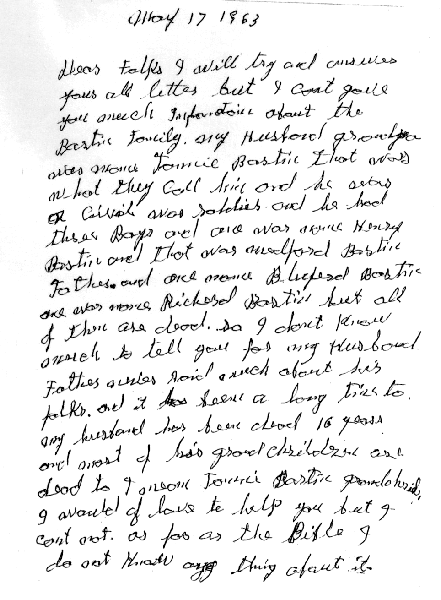 May 17 1963
Dear Folks I will try and answer
your all letter but I cant give
you much Information about the
Bastin Family. my Husband grandpa
was name Tommie Bastin that was
what they call him and he was
a Civil war soldier and he had
three Boys and one was name Henry
Bastin and that was medford Bastin
Father. and one name Bluford Bastin
one was name Richerd Bastin but all
of them are dead. so I dont Know
much to tell you for my Husband
Father never said much about his
folks. and it been a long time to.
my husband has been dead 16 years
and most of his grandchildren are
dead to I mean Tommie Bastin grandchildren
I would of love to help you but I
cant not. as far as the Bible I
do not Know any thing about it